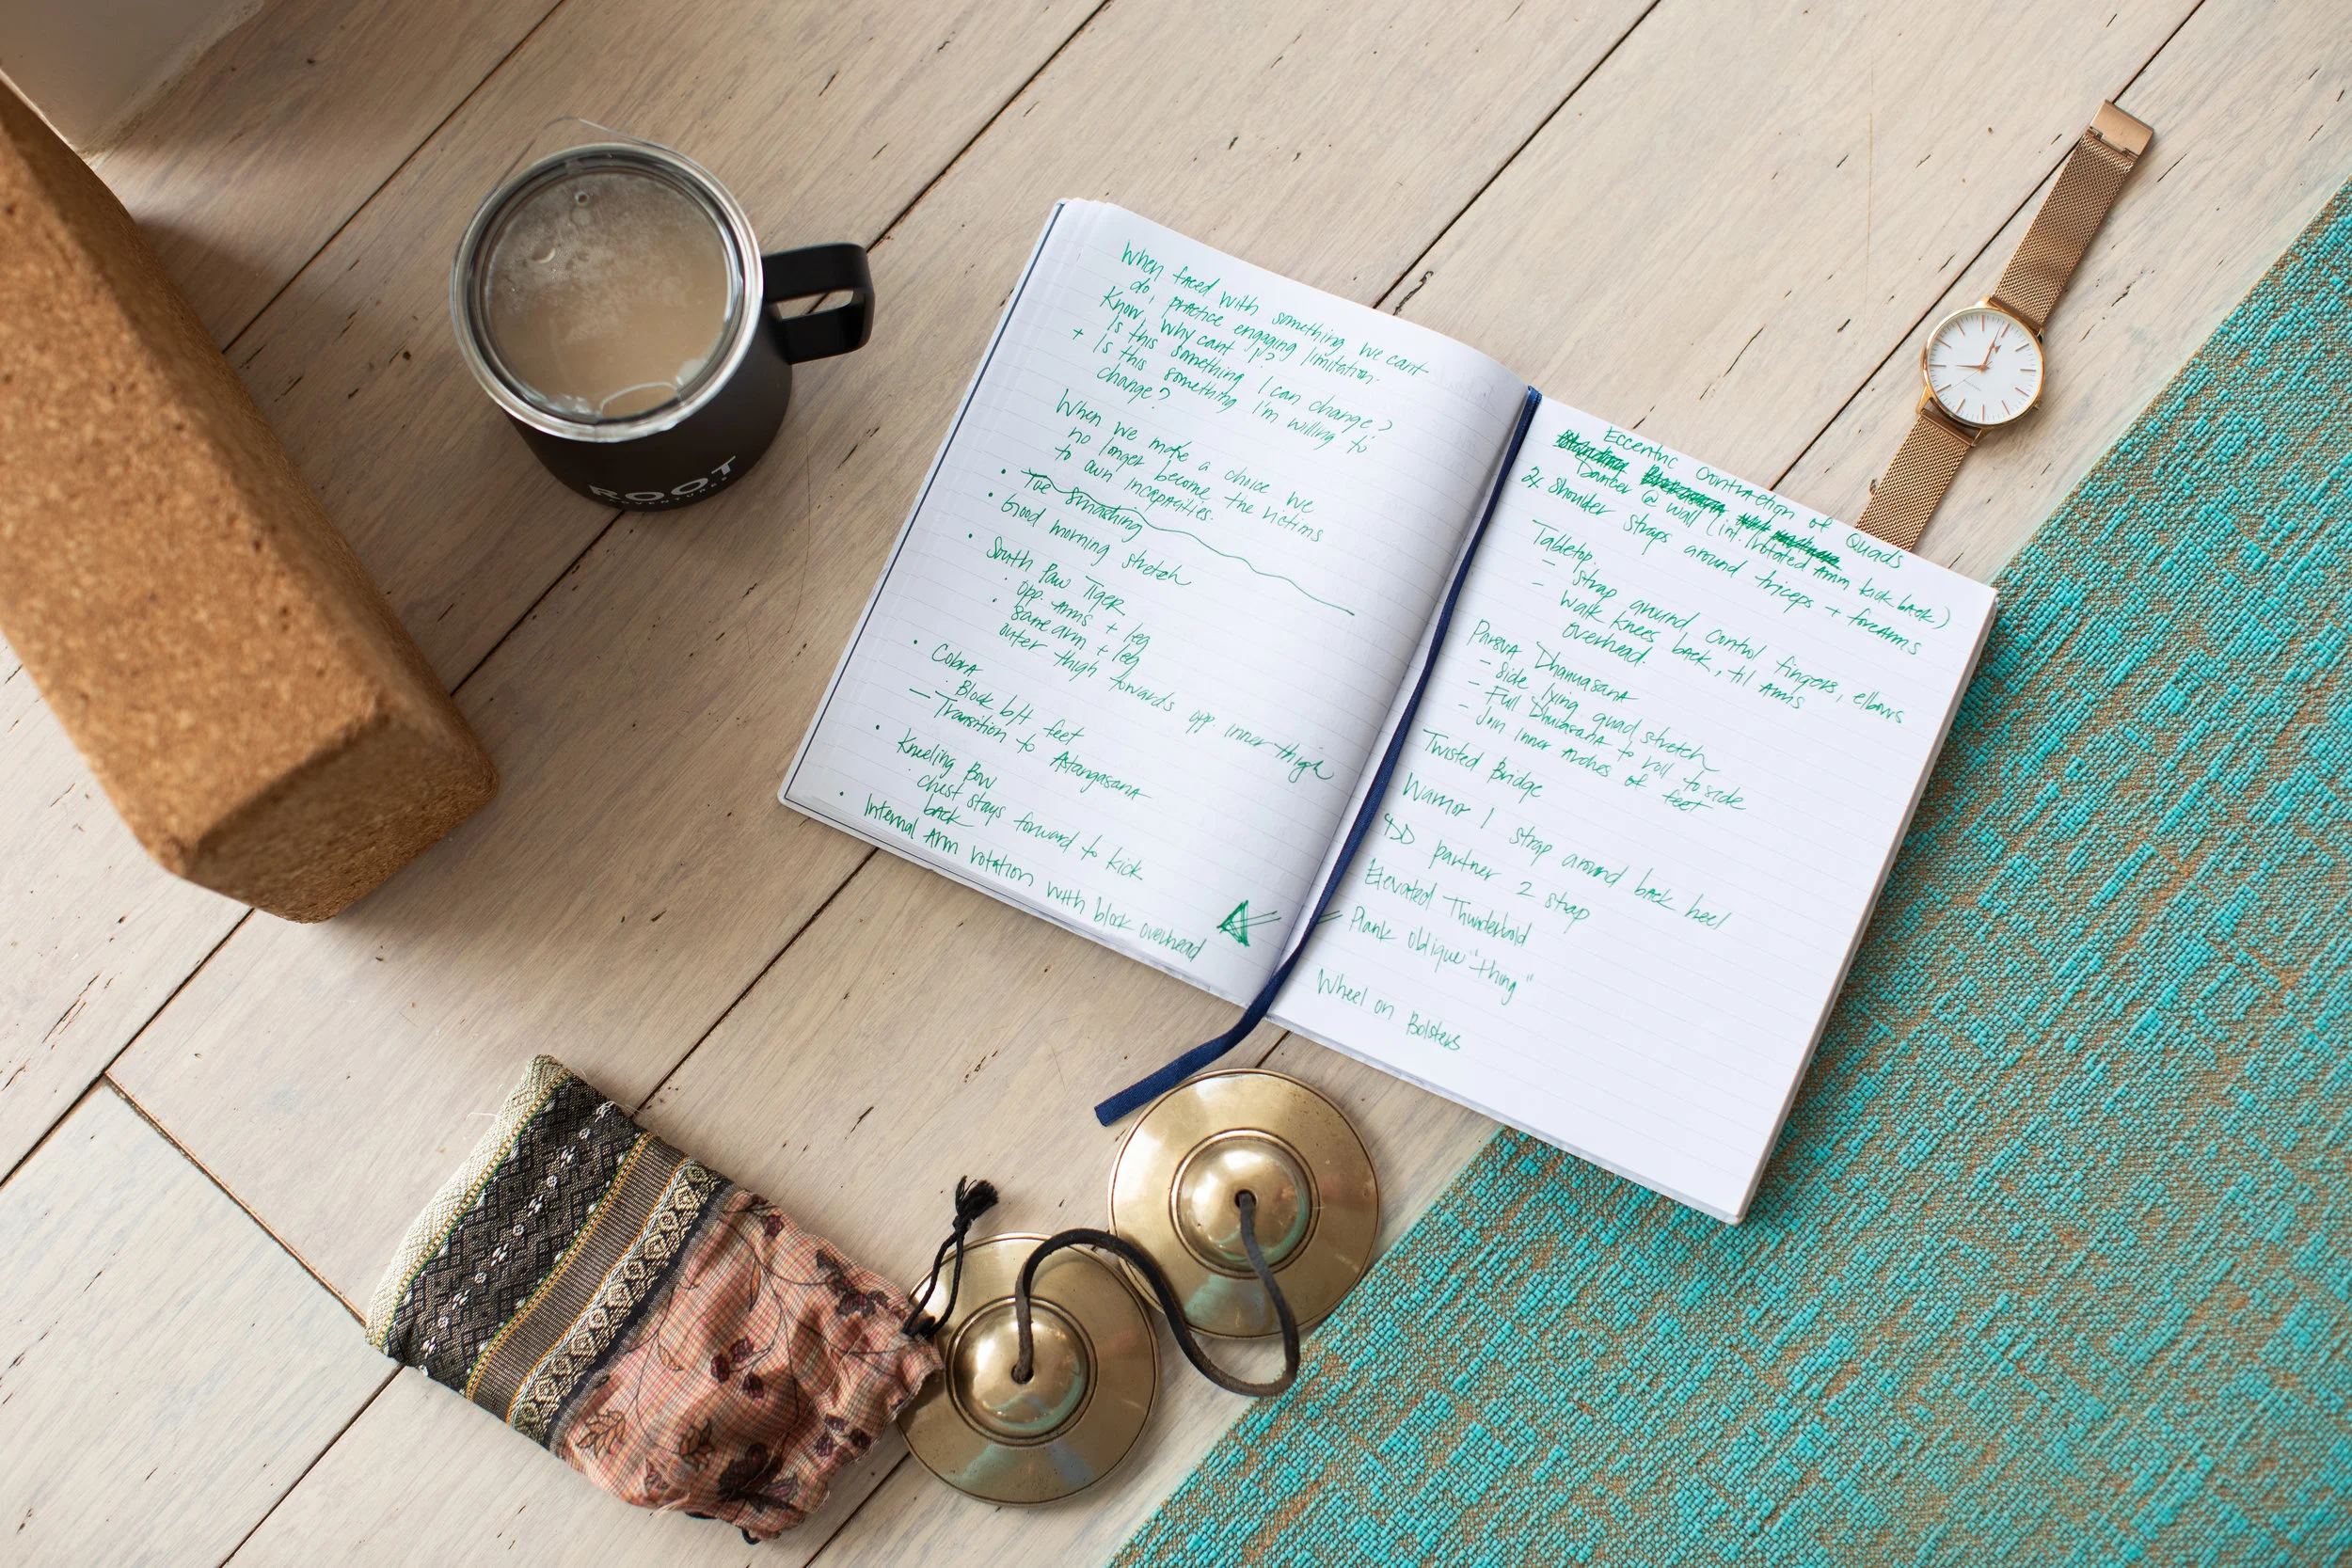 ROOT
ADVENTURES
When faced with something we cant
do, practice engaging limitation.
Know, why cant I?
Is this something I can change?
+ Is this something I'm willing to
change?
When we make a choice we
no longer become the victims
to own incapacities.
• Toe Smashing
• Good morning stretch
• South Paw Tiger
• opp. Arms + leg
• same arm + leg
outer thigh towards opp inner thigh
• Cobra
• Block b/t feet
— Transition to Astangasana
• Kneeling Bow
• chest stays forward to kick
back
• Internal Arm rotation with block overhead
Eccentric Contraction of Quads
Dancer @ wall (int. rotated Arm kick back)
2x shoulder straps around triceps + forearms
Tabletop
- strap around control fingers, elbows
- walk knees back, til Arms
overhead.
Parsva Dhanuasana
- Side lying quad stretch
- Full Dhurasana to roll to side
- Join inner Arches of feet
Twisted Bridge
Warrior 1 strap around back heel
DD partner 2 strap
Elevated Thunderbold
Plank oblique "thing"
Wheel on Bolsters